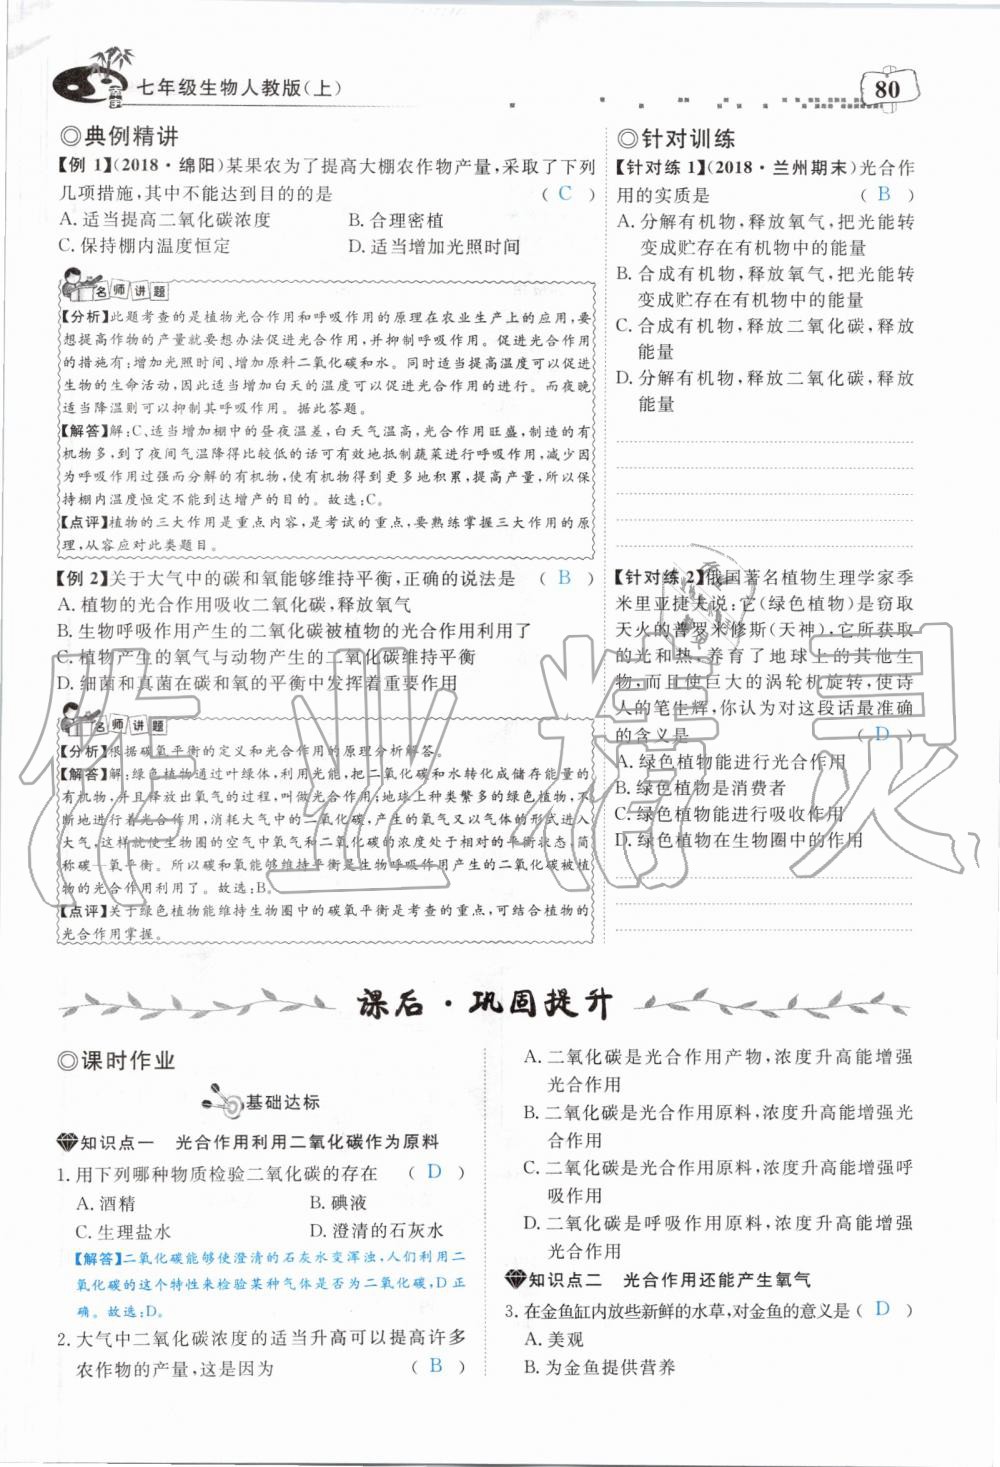 七年级生物人教版(上)
80
◎典例精讲
【例 1】(2018·绵阳)某果农为了提高大棚农作物产量,采取了下列
几项措施,其中不能达到目的的是 ( C )
A. 适当提高二氧化碳浓度 B. 合理密植
C. 保持棚内温度恒定 D. 适当增加光照时间
名师讲题
【分析】此题考查的是植物光合作用和呼吸作用的原理在农业生产上的应用,要
想提高作物的产量就要想办法促进光合作用,并抑制呼吸作用。促进光合作用
的措施有:增加光照时间、增加原料二氧化碳和水。同时适当提高温度可以促进
生物的生命活动,因此适当增加白天的温度可以促进光合作用的进行。而夜晚
适当降温则可以抑制其呼吸作用。据此答题。
【解答】解:C、适当增加棚中的昼夜温差,白天气温高,光合作用旺盛,制造的有
机物多,到了夜间气温降得比较低的话可有效地抵制蔬菜进行呼吸作用,减少因
为呼吸作用过强而分解的有机物,使有机物得到更多地积累,提高产量,所以保
持棚内温度恒定不能达到增产的目的。故选:C。
【点评】植物的三大作用是重点内容,是考试的重点,要熟练掌握三大作用的原
理,从容应对此类题目。
【例 2】关于大气中的碳和氧能够维持平衡,正确的说法是 ( B )
A. 植物的光合作用吸收二氧化碳,释放氧气
B. 生物呼吸作用产生的二氧化碳被植物的光合作用利用了
C. 植物产生的氧气与动物产生的二氧化碳维持平衡
D. 细菌和真菌在碳和氧的平衡中发挥着重要作用
名师讲题
【分析】根据碳氧平衡的定义和光合作用的原理分析解答。
【解答】解:绿色植物通过叶绿体,利用光能,把二氧化碳和水转化成储存能量的
有机物,并且释放出氧气的过程,叫做光合作用;地球上种类繁多的绿色植物,不
断地进行着光合作用,消耗大气中的二氧化碳,产生的氧气又以气体的形式进入
大气,这样就使生物圈的空气中氧气和二氧化碳的浓度处于相对的平衡状态,简
称碳—氧平衡。所以碳和氧能够维持平衡是生物呼吸作用产生的二氧化碳被植
物的光合作用利用了。故选:B。
【点评】关于绿色植物能维持生物圈中的碳氧平衡是考查的重点,可结合植物的
光合作用掌握。
◎针对训练
【针对练 1】(2018·兰州期末)光合作
用的实质是 ( B )
A. 分解有机物,释放氧气,把光能转
变成贮存在有机物中的能量
B. 合成有机物,释放氧气,把光能转
变成贮存在有机物中的能量
C. 合成有机物,释放二氧化碳,释放
能量
D. 分解有机物,释放二氧化碳,释放
能量
【针对练 2】俄国著名植物生理学家季
米里亚捷夫说:它(绿色植物)是窃取
天火的普罗米修斯(天神),它所获取
的光和热,养育了地球上的其他生
物,而且使巨大的涡轮机旋转,使诗
人的笔生辉,你认为对这段话最准确
的含义是 ( D )
A. 绿色植物能进行光合作用
B. 绿色植物是消费者
C. 绿色植物能进行吸收作用
D. 绿色植物在生物圈中的作用
作业精灵
课后·巩固提升
◎课时作业
基础达标
知识点一 光合作用利用二氧化碳作为原料
1. 用下列哪种物质检验二氧化碳的存在 ( D )
A. 酒精 B. 碘液
C. 生理盐水 D. 澄清的石灰水
【解答】二氧化碳能够使澄清的石灰水变浑浊,人们利用二
氧化碳的这个特性来检验某种气体是否为二氧化碳,D 正
确。故选:D。
2. 大气中二氧化碳浓度的适当升高可以提高许多
农作物的产量,这是因为 ( B )
A. 二氧化碳是光合作用产物,浓度升高能增强
光合作用
B. 二氧化碳是光合作用原料,浓度升高能增强光
合作用
C. 二氧化碳是光合作用原料,浓度升高能增强呼
吸作用
D. 二氧化碳是呼吸作用原料,浓度升高能增强
光合作用
知识点二 光合作用还能产生氧气
3. 在金鱼缸内放些新鲜的水草,对金鱼的意义是( D )
A. 美观
B. 为金鱼提供营养